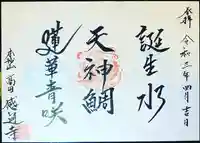 奉拝 令和三年四月吉日
誕生水
天神鯛
蓮華青咲
高田 感通寺